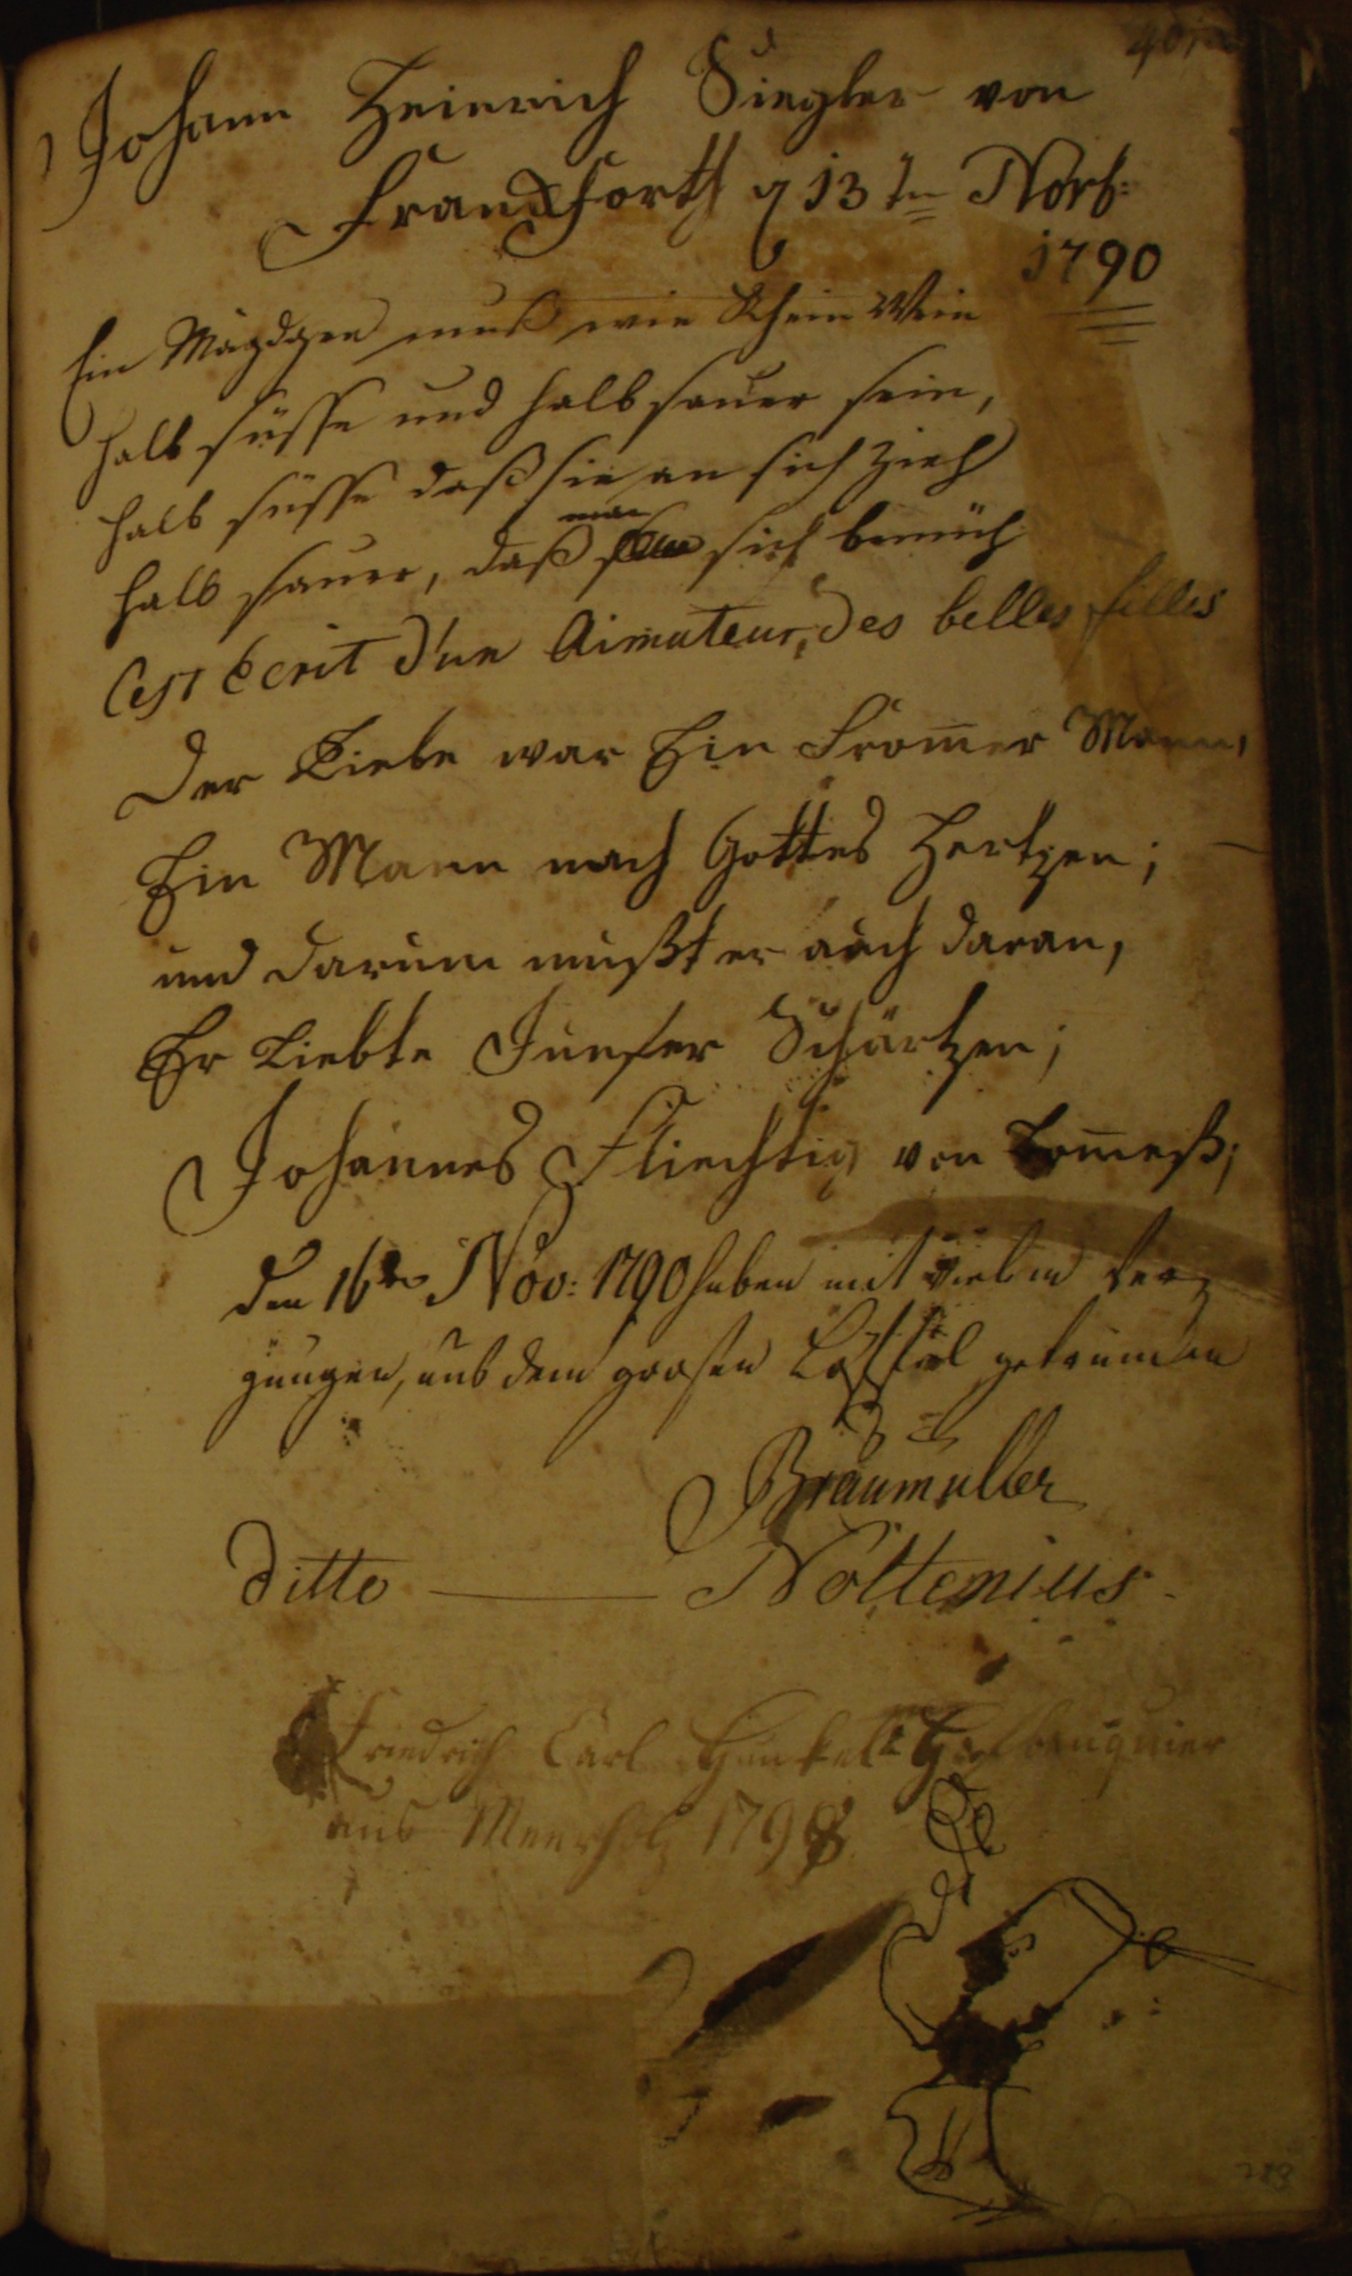 Johann Heinrich Siegler von
Franckforth d 13ten Novb:
1790
Ein Mägdgen muß wie Rhein Wein
halb süsse und halb sauer sein,
halb süsse daß sie an sich zieh
halb sauer, daß man sich bemüh
C'est écrit d'un Aimateur, des belles filles
Der Liebe war Ein Fromer Mann,
Ein Mann nach Gottes Hertzen;
und darum mußt er auch daran,
Er Liebte Junfer Schürtzen;
Johannes Fliechtig von
den 16ten Nov: 1790 haben mit vielem Verg
gungen, aus dem grosen Löffel getruncken
Braumuller
ditto — Noltenius
Friedrich Carl
aus Meerholz 1798
288